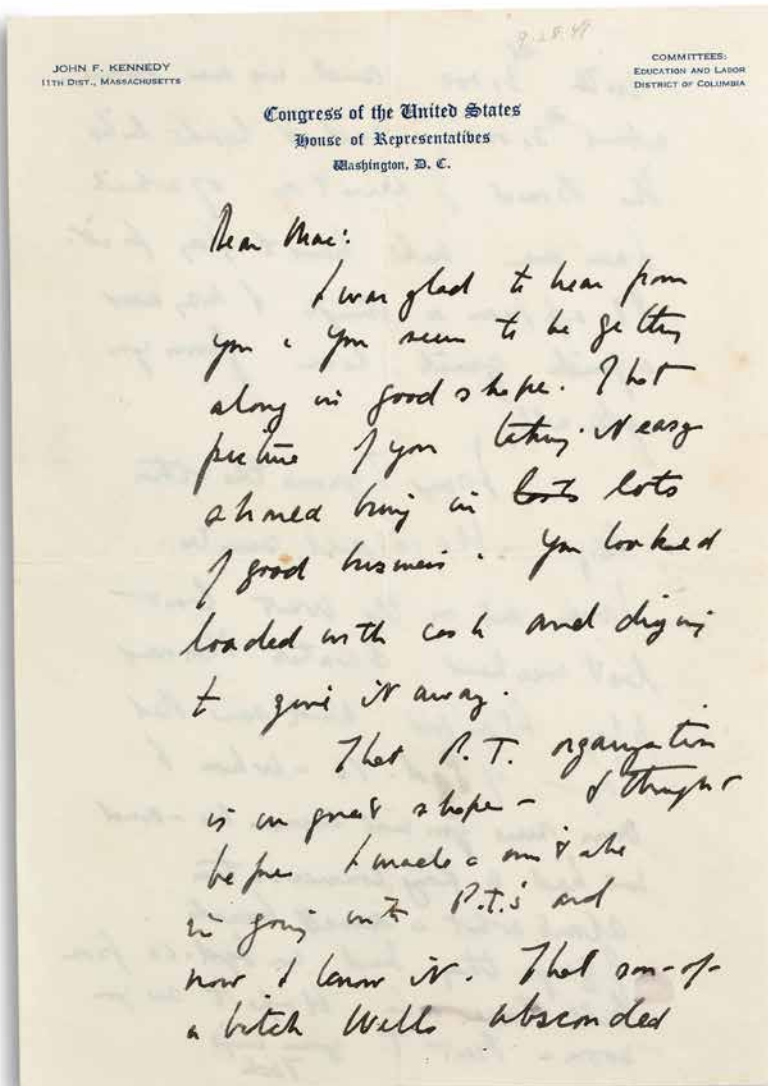 9-28-47
JOHN F. KENNEDY
11TH DIST., MASSACHUSETTS
COMMITTEES:
EDUCATION AND LABOR
DISTRICT OF COLUMBIA
Congress of the United States
House of Representatives
Washington, D. C.
Dear Mac:
I was glad to hear from
you & you seem to be getting
along in good shape. That
picture of you taking it easy
should bring in lots
of good business. You looked
loaded with cash and dying
to give it away.
That P.T. organization
is in great shape – I thought
before I made a mistake
in going into P.T.'s and
now I know it. That son-of-
a bitch Wells absconded